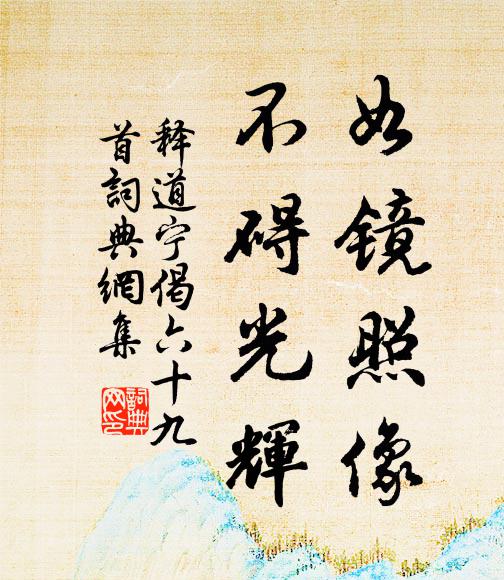 如镜照像
不碍光輝
释道宁偈六十九
首詞典網集
詞典
网印